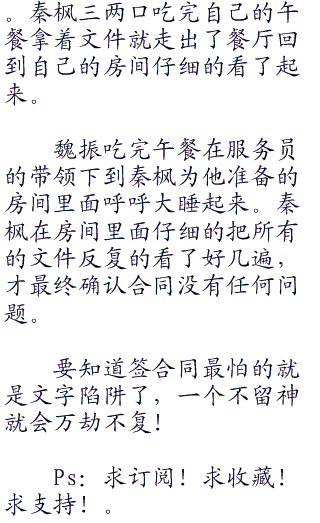 。秦枫三两口吃完自己的午
餐拿着文件就走出了餐厅回
到自己的房间仔细的看了起
来。
魏振吃完午餐在服务员
的带领下到秦枫为他准备的
房间里面呼呼大睡起来。秦
枫在房间里面仔细的把所有
的文件反复的看了好几遍，
才最终确认合同没有任何问
题。
要知道签合同最怕的就
是文字陷阱了，一个不留神
就会万劫不复！
Ps：求订阅！求收藏！
求支持！。